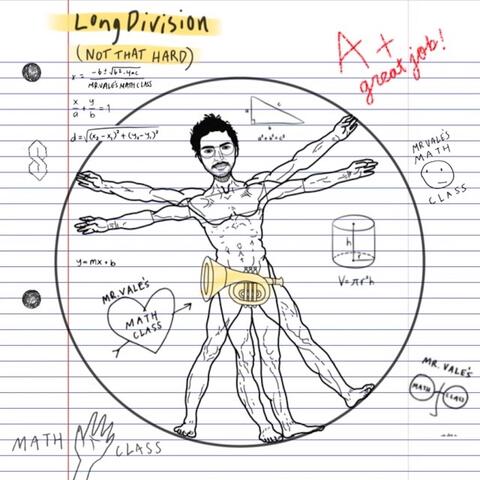 Long Division
(NOT THAT HARD)
A+
great job!
x = -b ± √b²-4ac
MR.VALE'S MATH CLASS
x/a + y/b = 1
d = √(x₂ - x₁)² + (y₂ - y₁)²
a c
b
a² + b² = c²
MR.VALE'S
MATH
CLASS
h
r
V=πr²h
y = mx + b
MR.VALE'S
MATH
CLASS
MR. VALE'S
MATH CLASS
MATH CLASS